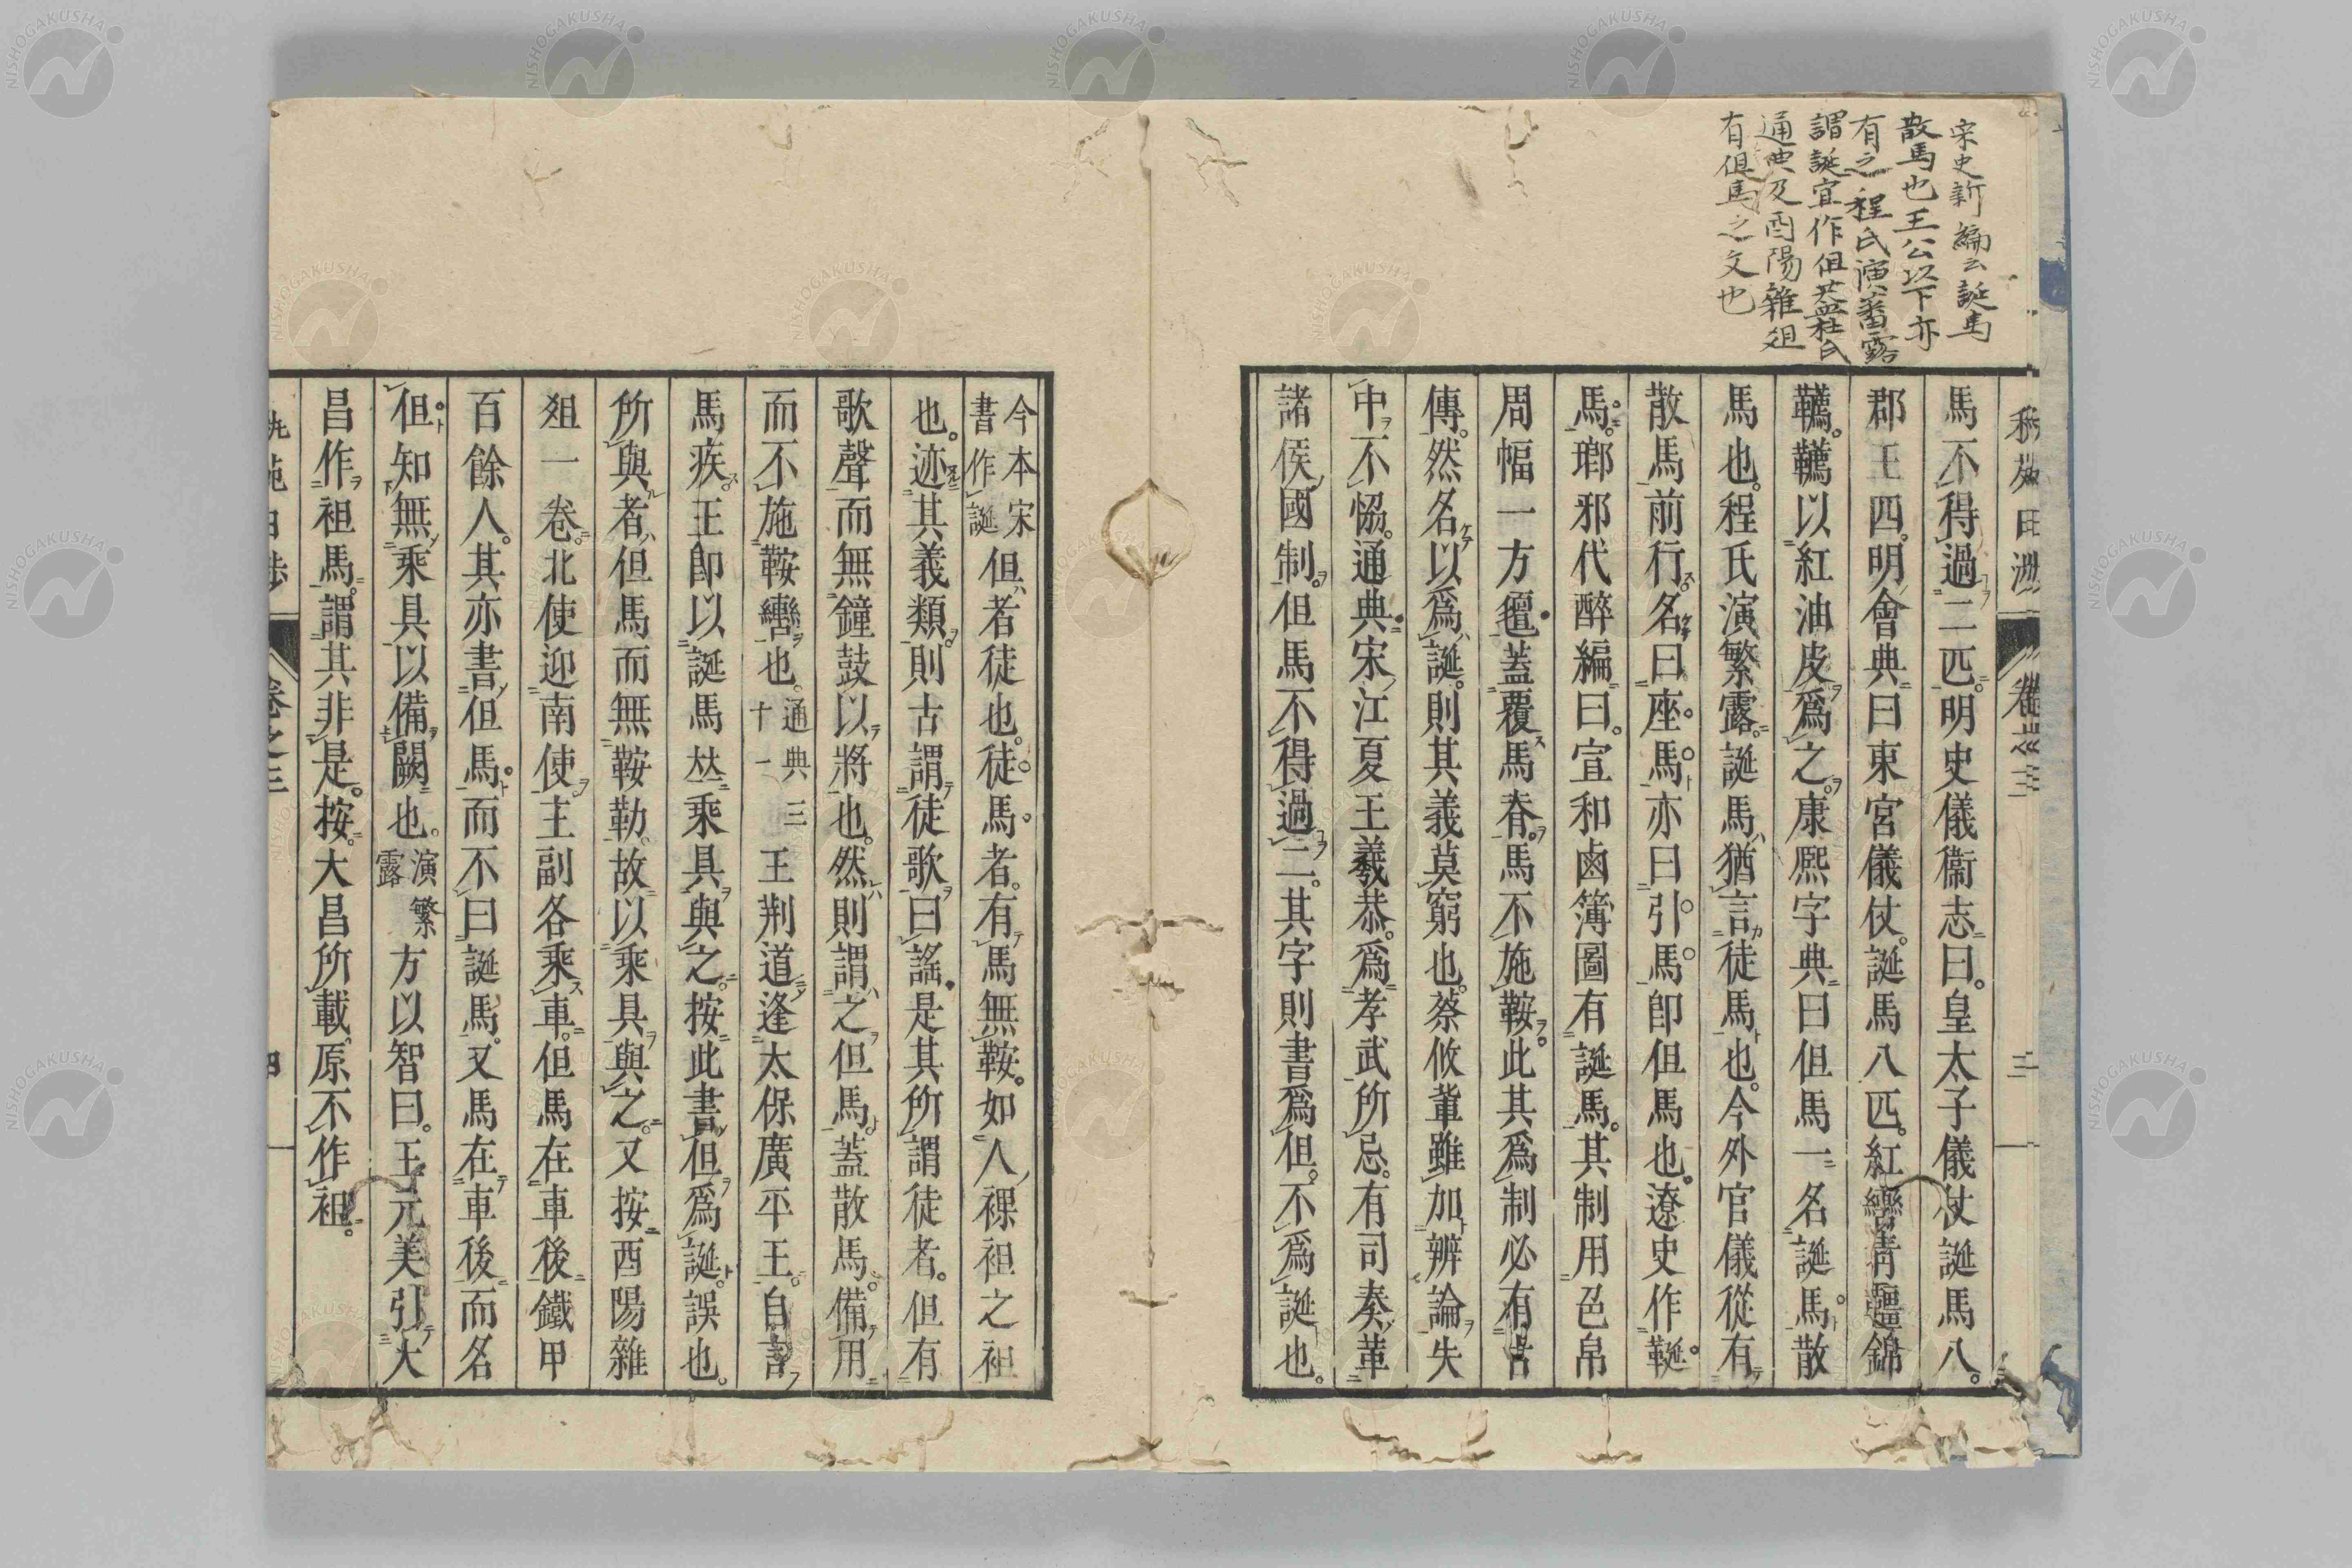 宋史新編云誕馬
散馬也王公以下亦
有之程氏演蕃露
謂誕宜作但蓋杜氏
通典及酉陽雜俎
有但馬之文也
馬不得過二匹。明史儀衞志曰。皇太子儀仗誕馬八。
郡王四。明會典曰東宮儀仗。誕馬八匹。紅轡青韁錦
韉。韉以紅油皮爲之。康熙字典曰但馬一名誕馬。散
馬也。程氏演繁露。誕馬猶言徒馬也。今外官儀從有
散馬前行。名曰座馬亦曰引馬卽但馬也。遼史作䩥。
馬。瑯邪代醉編曰。宣和鹵簿圖有誕馬。其制用色帛
周幅一方氊蓋覆馬脊。馬不施鞍。此其爲制必有古
傳。然名以爲誕。則其義莫窮也。蔡攸輩雖加辨論失
中不恊。通典宋江夏王羲恭。爲孝武所忌。有司奏革
諸侯國制。但馬不得過二。其字則書爲但。不爲誕也。
今本宋書作誕但者徒也。徒馬者。有馬無鞍。如人裸袒之袒
也。迹其義類。則古謂徒歌曰謠。是其所謂徒者。但有
歌聲而無鐘鼓以將也。然則謂之但馬。蓋散馬。備用
而不施鞍轡也。通典三十一王荆道逢太保廣平王。自言
馬疾。王卽以誕馬𠀤乘具與之。按此書但爲誕。誤也。
所與者。但馬而無鞍勒。故以乘具與之。又按酉陽雜
俎一卷。北使迎南使。主副各乘車。但馬在車後。鐵甲
百餘人。其亦書但馬。而不曰誕馬。又馬在車後而名
但。知無乘具以備闕也。演繁露方以智曰。王元美引大
昌作袒馬。謂其非是。按。大昌所載。原不作袒。
卷之三
四
NISHOGAKUSHA